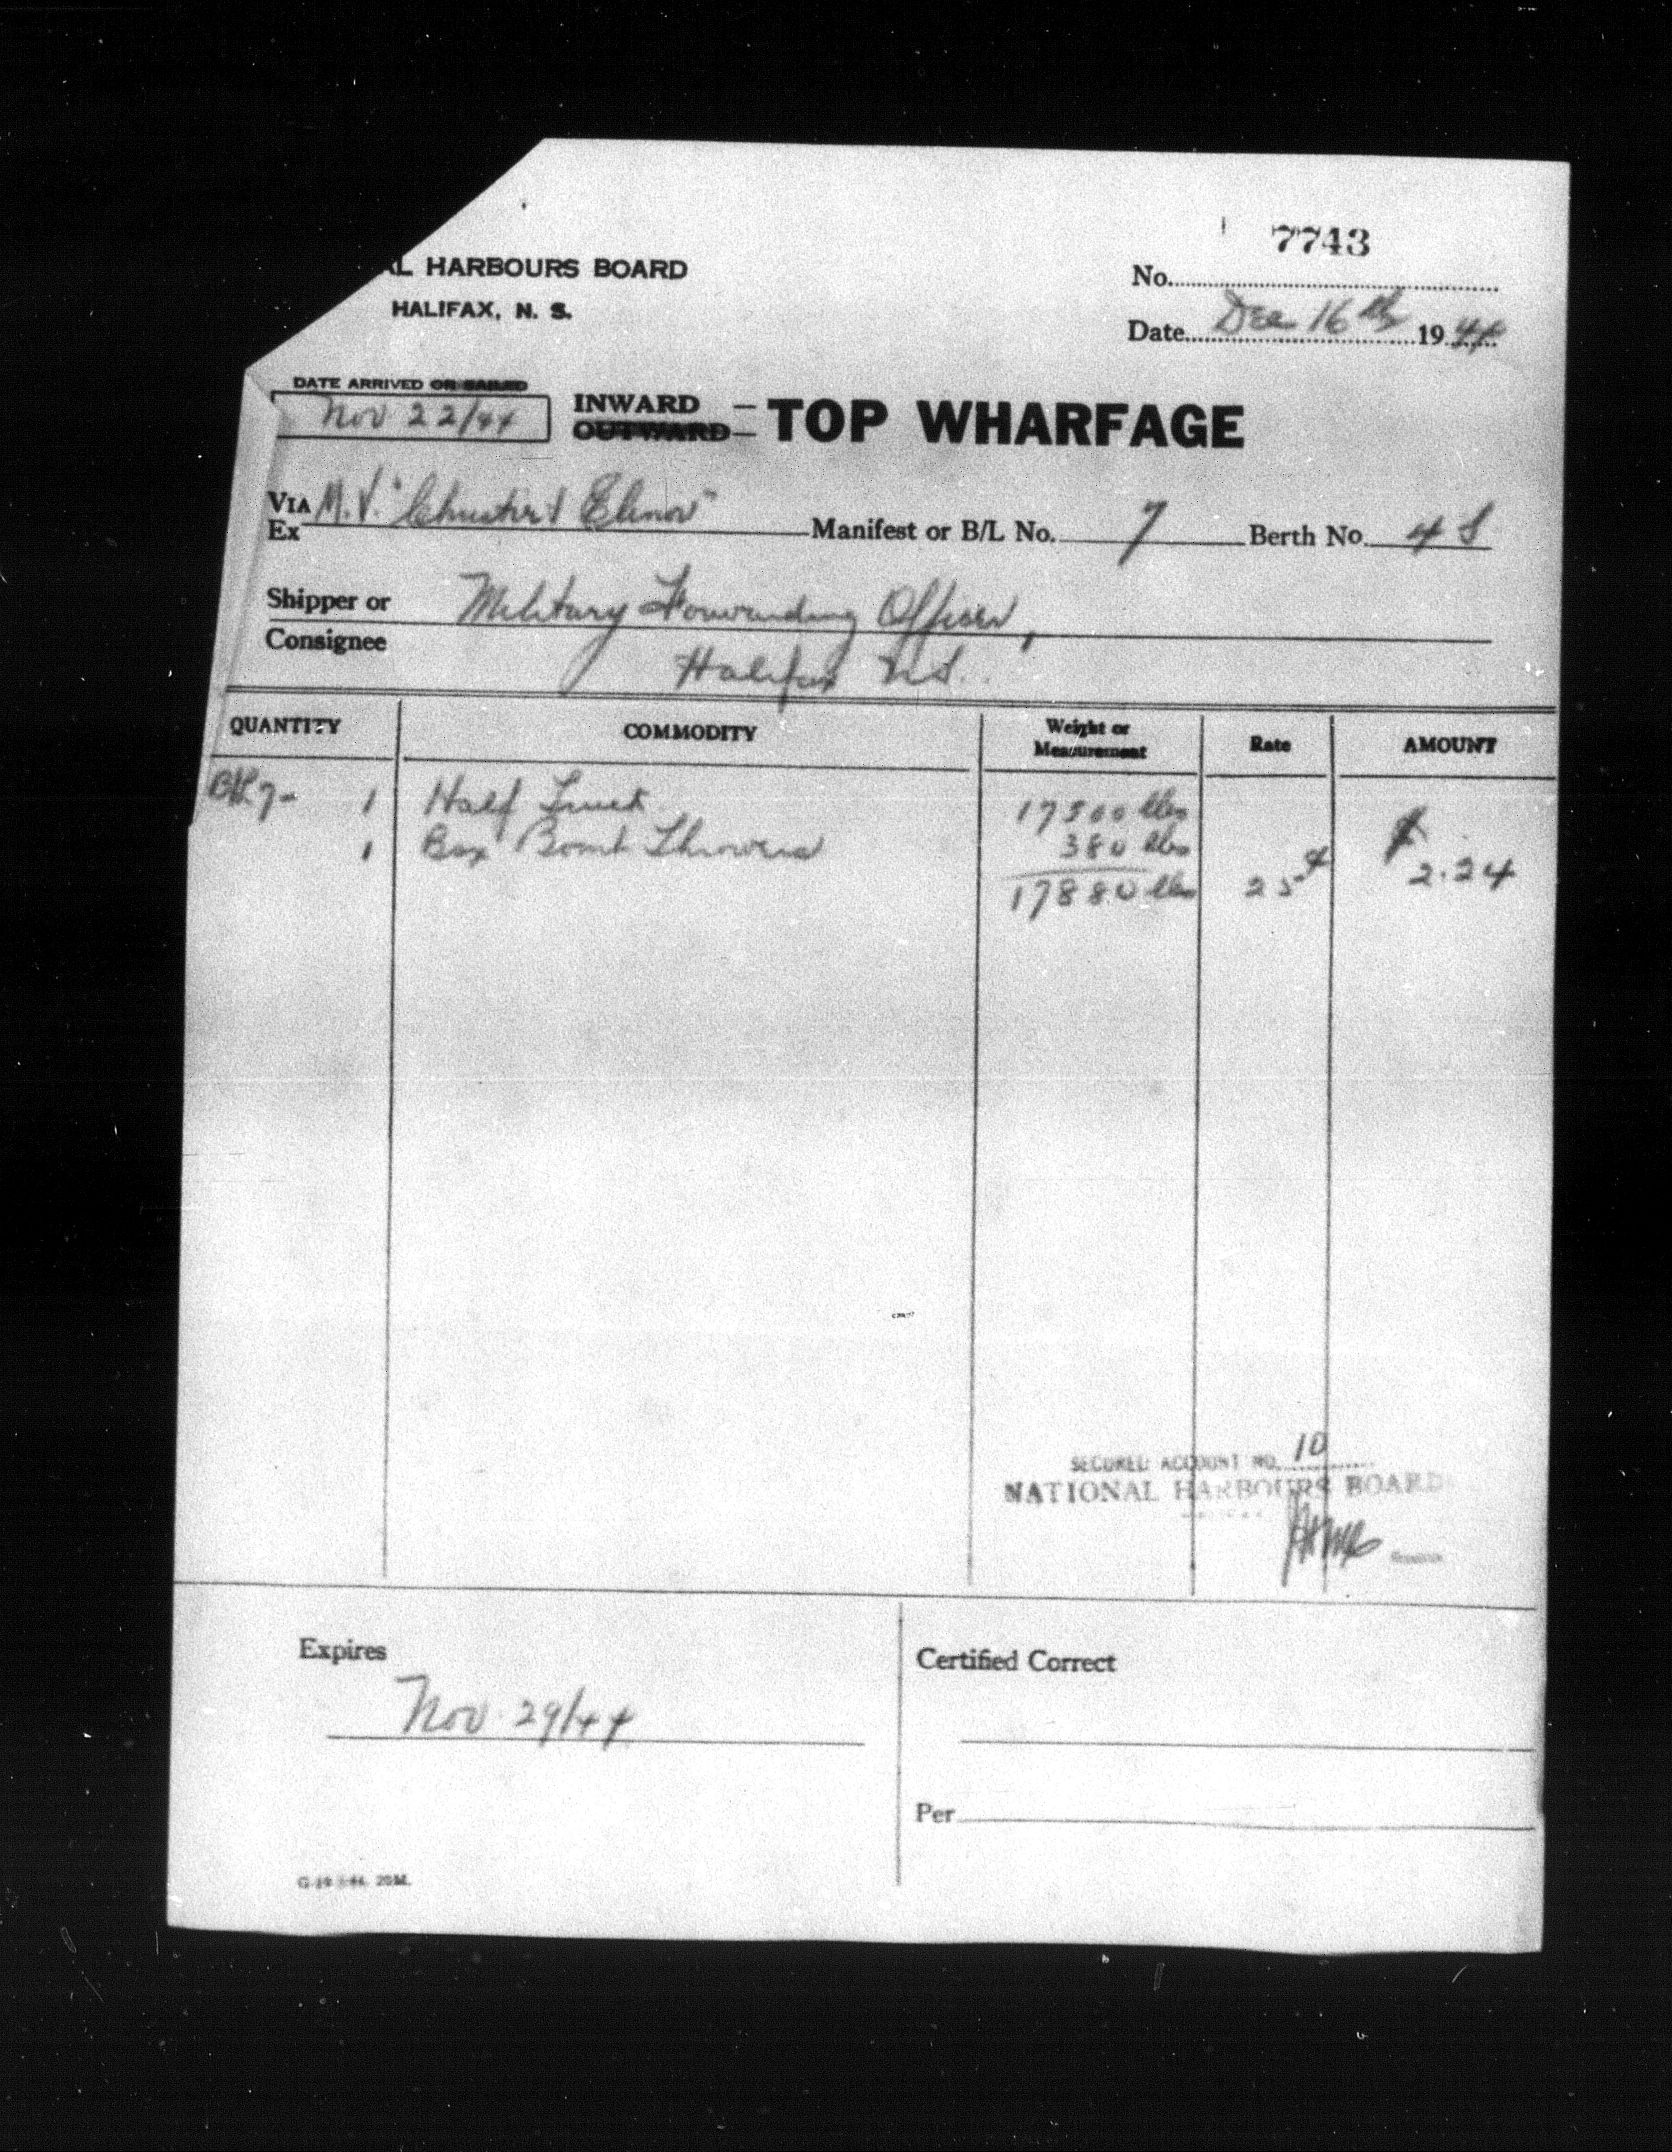 AL HARBOURS BOARD
HALIFAX, N. S.
7743
No.
Date Dec 16th 1944
DATE ARRIVED OR SAILED
Nov 22/44
INWARD
OUTWARD
— TOP WHARFAGE
VIA
Ex
M.V. " Elinor"
Manifest or B/L No. 7
Berth No. 4 S
Shipper or
Consignee
Military Forwarding Officer,
Halifax N.S.
QUANTITY COMMODITY Weight or Measurement Rate AMOUNT
1 Half Truck 17500 lbs
1 Box Bomb Throwers 380 lbs
17880 lbs 25¢ $ 2.24
SECURED ACCOUNT NO. 10
NATIONAL HARBOURS BOARD
Expires
Nov. 29/44
Certified Correct
Per
20M.